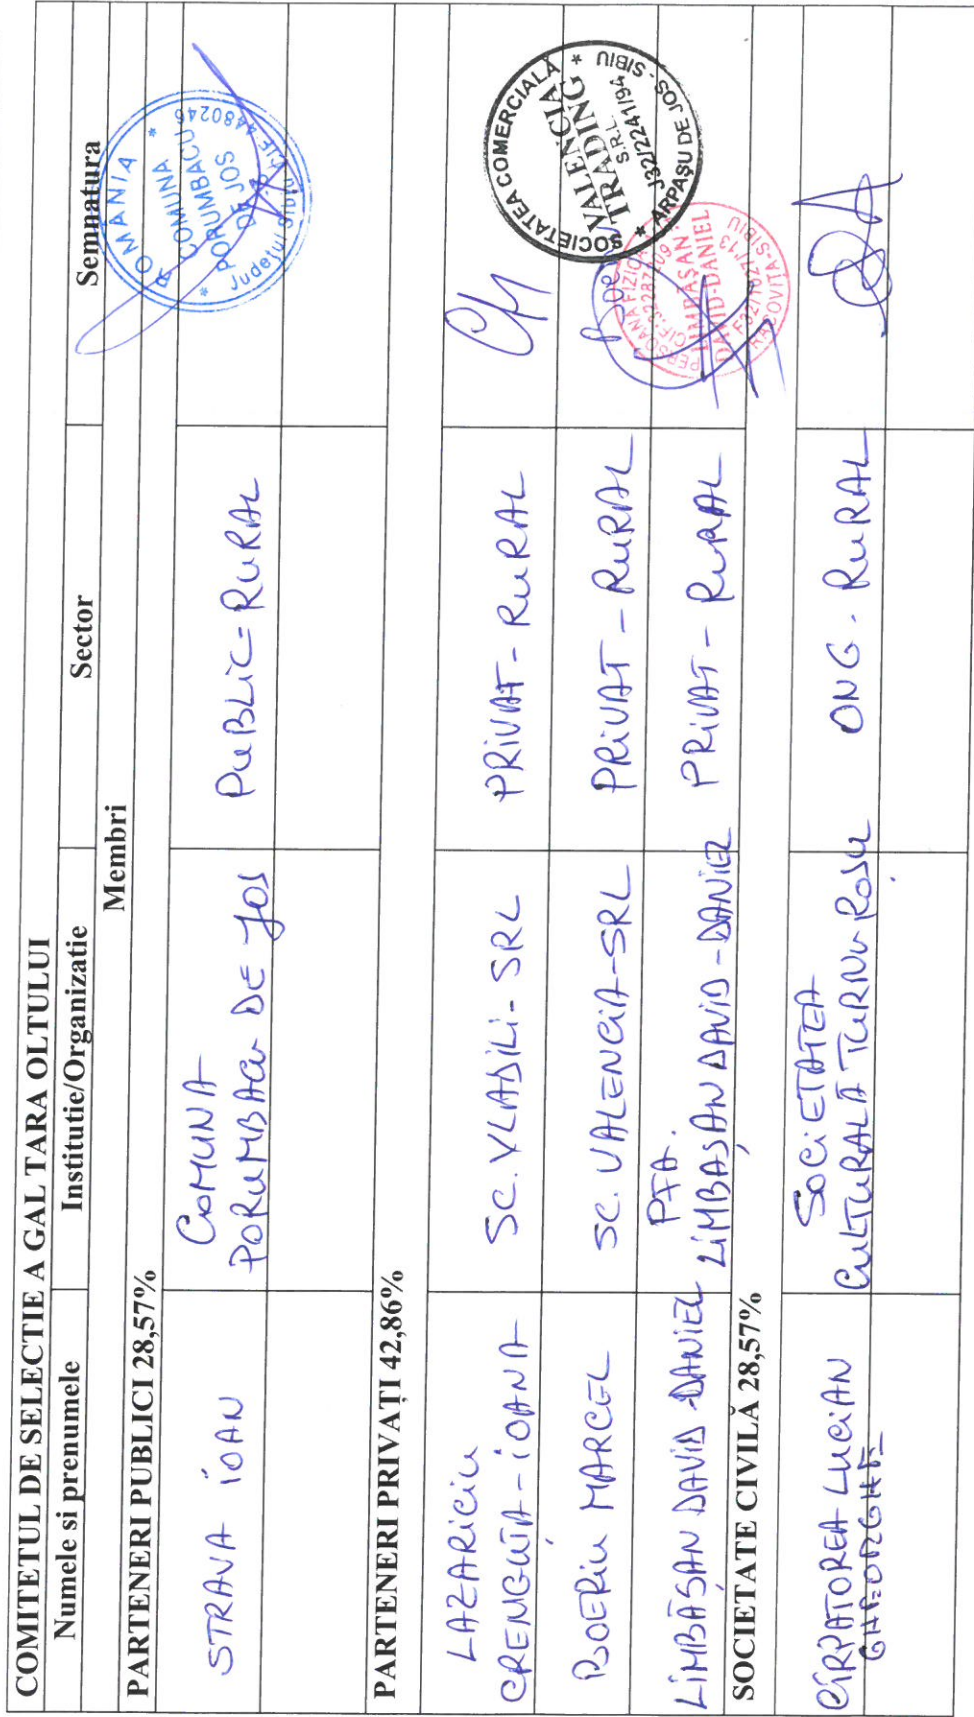 COMITETUL DE SELECTIE A GAL TARA OLTULUI
Numele si prenumele Institutie/Organizatie Sector Semnatura
Membri
PARTENERI PUBLICI 28,57%
STRAVA IOAN COMUNA PORUMBACU DE JOS PUBLIC-RURAL
ROMANIA
COMUNA
PORUMBACU
DE JOS
Județul Sibiu CIF 4480246
PARTENERI PRIVAȚI 42,86%
LAZARICIU
CRENGUȚA-IOANA SC. VLADILI-SRL PRIVAT-RURAL
BOERIU MARCEL SC. VALENCIA-SRL PRIVAT-RURAL
SOCIETATEA COMERCIALĂ
VALENCIA
TRADING
S.R.L.
J32/2241/94
ARPAȘU DE JOS - SIBIU
PFA.
LIMBĂȘAN DAVID-DANIEL LIMBĂȘAN DAVID-DANIEL PRIVAT-RURAL
PERSOANA FIZICĂ
LIMBĂȘAN
DAVID-DANIEL
RACOVITA-SIBIU
SOCIETATE CIVILĂ 28,57%
SOCIETATEA
CÎRPATOREA LUCIAN CULTURALĂ TURNU ROȘU ONG-RURAL
GHEORGHE